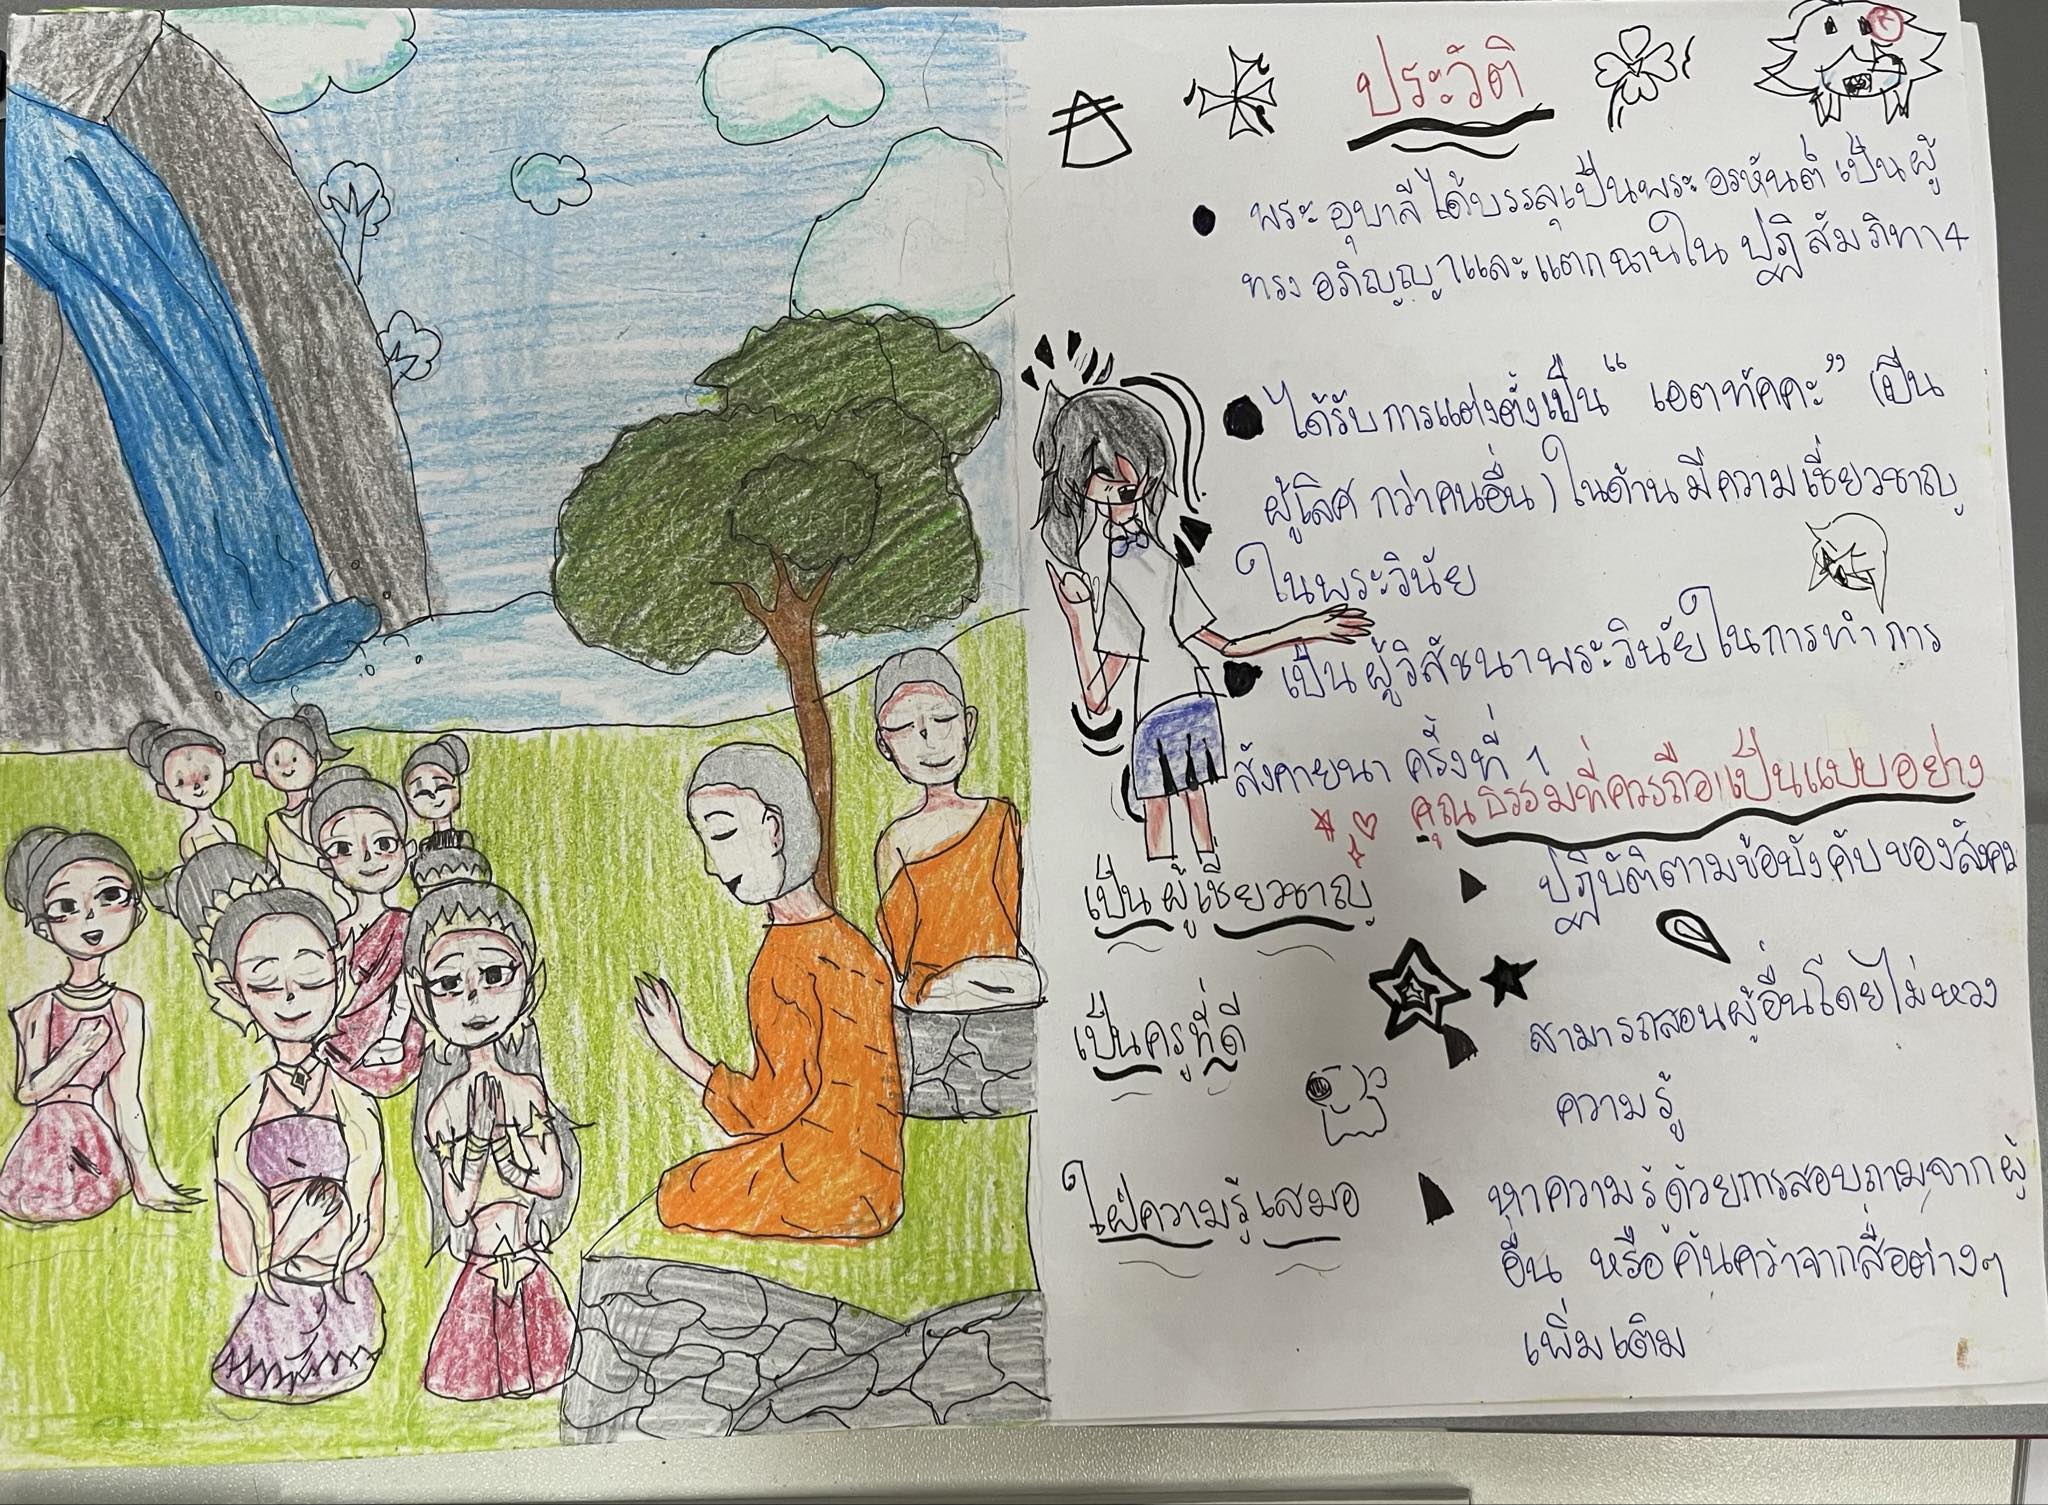 ประวัติ
พระอุบาลีได้บรรลุเป็นพระอรหันต์ เป็นผู้
ทรงอภิญญาและแตกฉานใน ปฏิสัมภิทา 4
ได้รับการแต่งตั้งเป็น “ เอตทัคคะ” (เป็น
ผู้เลิศกว่าคนอื่น) ในด้านมีความเชี่ยวชาญ
ในพระวินัย
เป็นผู้วิสัชนาพระวินัยในการทำการ
สังคายนา ครั้งที่ 1
คุณธรรมที่ควรถือเป็นแบบอย่าง
เป็นผู้เชี่ยวชาญ
ปฏิบัติตามข้อบังคับของสังคม
เป็นครูที่ดี
สามารถสอนผู้อื่นโดยไม่หวง
ความรู้
ใฝ่ความรู้เสมอ
หาความรู้ด้วยการสอบถามจากผู้
อื่น หรือค้นคว้าจากสื่อต่างๆ
เพิ่มเติม